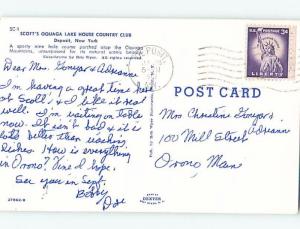 SC-1
SCOTT'S OQUAGA LAKE HOUSE COUNTRY CLUB
Deposit, New York
A sporty nine hole course perched atop the Oquaga
Mountains, unsurpassed for its natural scenic beauty.
Dear Mrs. Gonyar & Adriann
I'm having a great time here
at Scott's, I am glad
now. I'm waiting on tables
It isn't bad & it is
lots better than washing
dishes. How is everything
in Orono? Fine I hope.
See you in Sept.
Betty
Doe
27862-B
U.S. POSTAGE 3¢
LIBERTY
POST CARD
Mrs Christine Gonyar &
Adriann
100 Mill Street
Orono Main
DEXTER